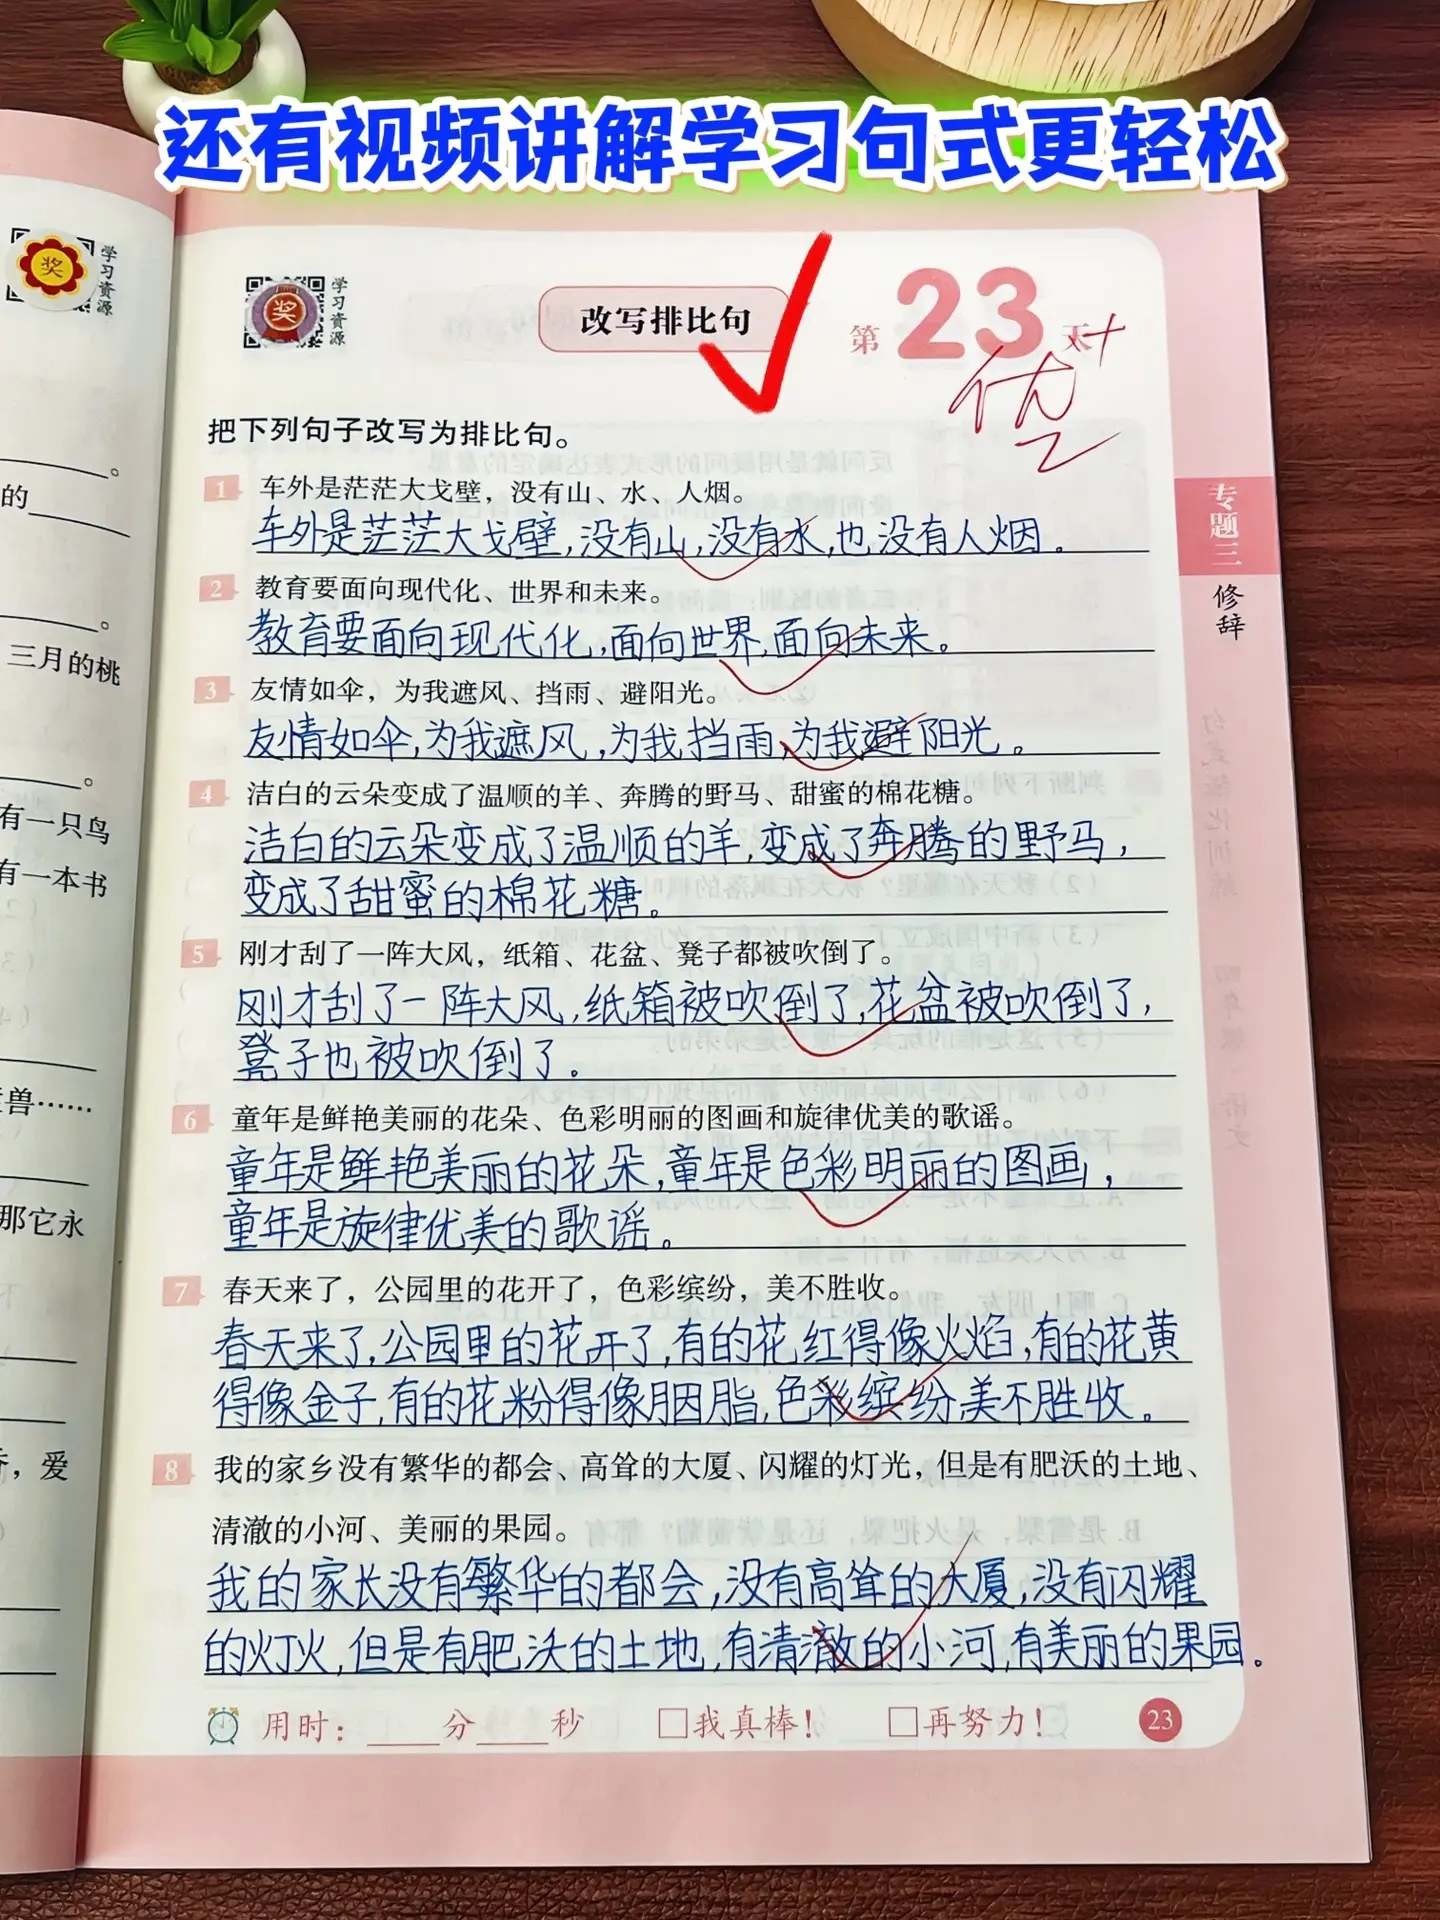 还有视频讲解学习句式更轻松
奖
学习资源
。
的
。
三月的桃
。
有一只鸟
有一本书
兽……
那它永
，爱
奖
学习资源
改写排比句
第23天
优+
2
把下列句子改写为排比句。
1 车外是茫茫大戈壁，没有山、水、人烟。
车外是茫茫大戈壁,没有山,没有水,也没有人烟。
2 教育要面向现代化、世界和未来。
教育要面向现代化,面向世界,面向未来。
3 友情如伞，为我遮风、挡雨、避阳光。
友情如伞,为我遮风,为我挡雨,为我避阳光。
4 洁白的云朵变成了温顺的羊、奔腾的野马、甜蜜的棉花糖。
洁白的云朵变成了温顺的羊,变成了奔腾的野马,
变成了甜蜜的棉花糖。
5 刚才刮了一阵大风，纸箱、花盆、凳子都被吹倒了。
刚才刮了一阵大风,纸箱被吹倒了,花盆被吹倒了,
凳子也被吹倒了。
6 童年是鲜艳美丽的花朵、色彩明丽的图画和旋律优美的歌谣。
童年是鲜艳美丽的花朵,童年是色彩明丽的图画,
童年是旋律优美的歌谣。
7 春天来了，公园里的花开了，色彩缤纷，美不胜收。
春天来了,公园里的花开了,有的花红得像火焰,有的花黄
得像金子,有的花粉得像胭脂,色彩缤纷,美不胜收。
8 我的家乡没有繁华的都会、高耸的大厦、闪耀的灯光，但是有肥沃的土地、
清澈的小河、美丽的果园。
我的家长没有繁华的都会,没有高耸的大厦,没有闪耀
的灯火,但是有肥沃的土地,有清澈的小河,有美丽的果园。
用时：____分____秒 □我真棒！ □再努力！
23
专题三
修辞